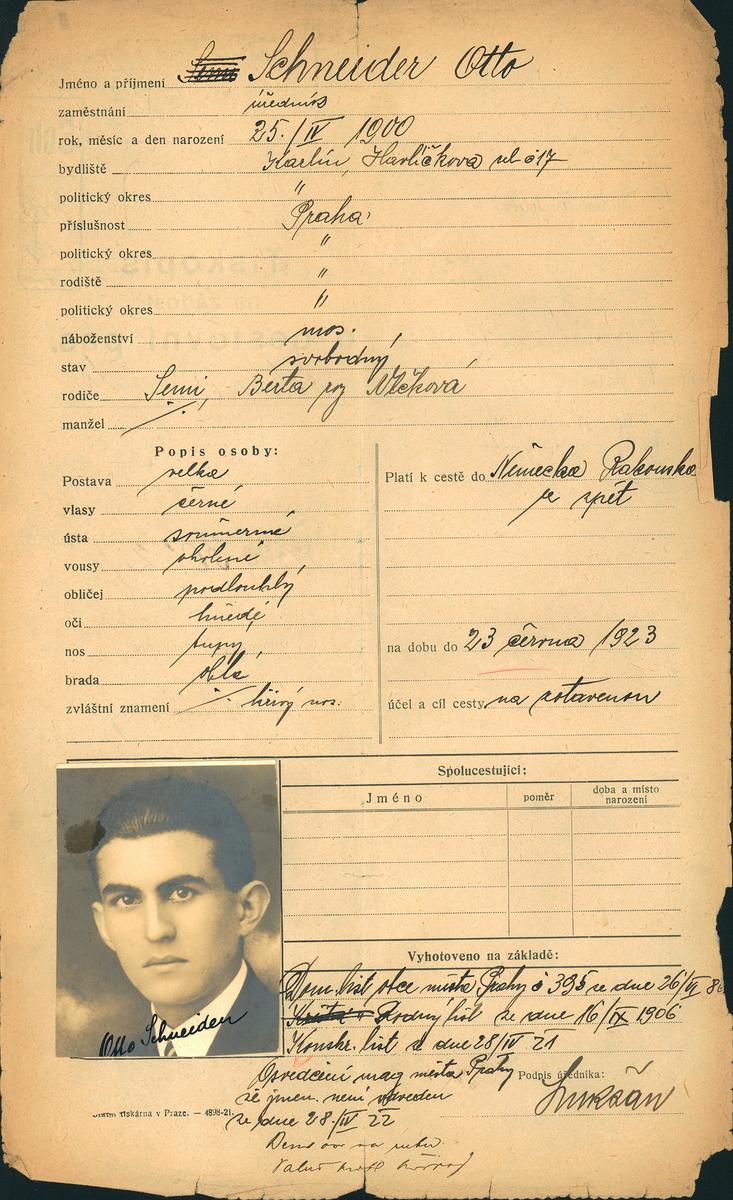 Jméno a příjmení Schneider Otto
zaměstnání úředník
rok, měsíc a den narození 25./IV 1900
bydliště Karlín, Havlíčkova ul č 17
politický okres "
příslušnost Praha
politický okres "
rodiště "
politický okres "
náboženství mos.
stav svobodný
rodiče Semi, Berta roz Vlčková
manžel ·/·
Popis osoby:
Postava velká
vlasy černé
ústa souměrné
vousy oholené
obličej podlouhlý
oči hnědé
nos tupý
brada oblá
zvláštní znamení ·/· křivý nos.
Platí k cestě do Německa Rakouska
a zpět
na dobu do 23 června 1923
účel a cíl cesty na zotavenou
Spolucestující:
Jméno
poměr
doba a místo narození
Otto Schneider
Vyhotoveno na základě:
Dom. list obce města Prahy č 395 ze dne 26/VI
Rodný list ze dne 16/IX 1906
Konskr. list z dne 28/IV 21
Osvědčení mag města Prahy
že jmen. není
ze dne 28./IV 22
Podpis úředníka:
Státní tiskárna v Praze. — 4898-21.